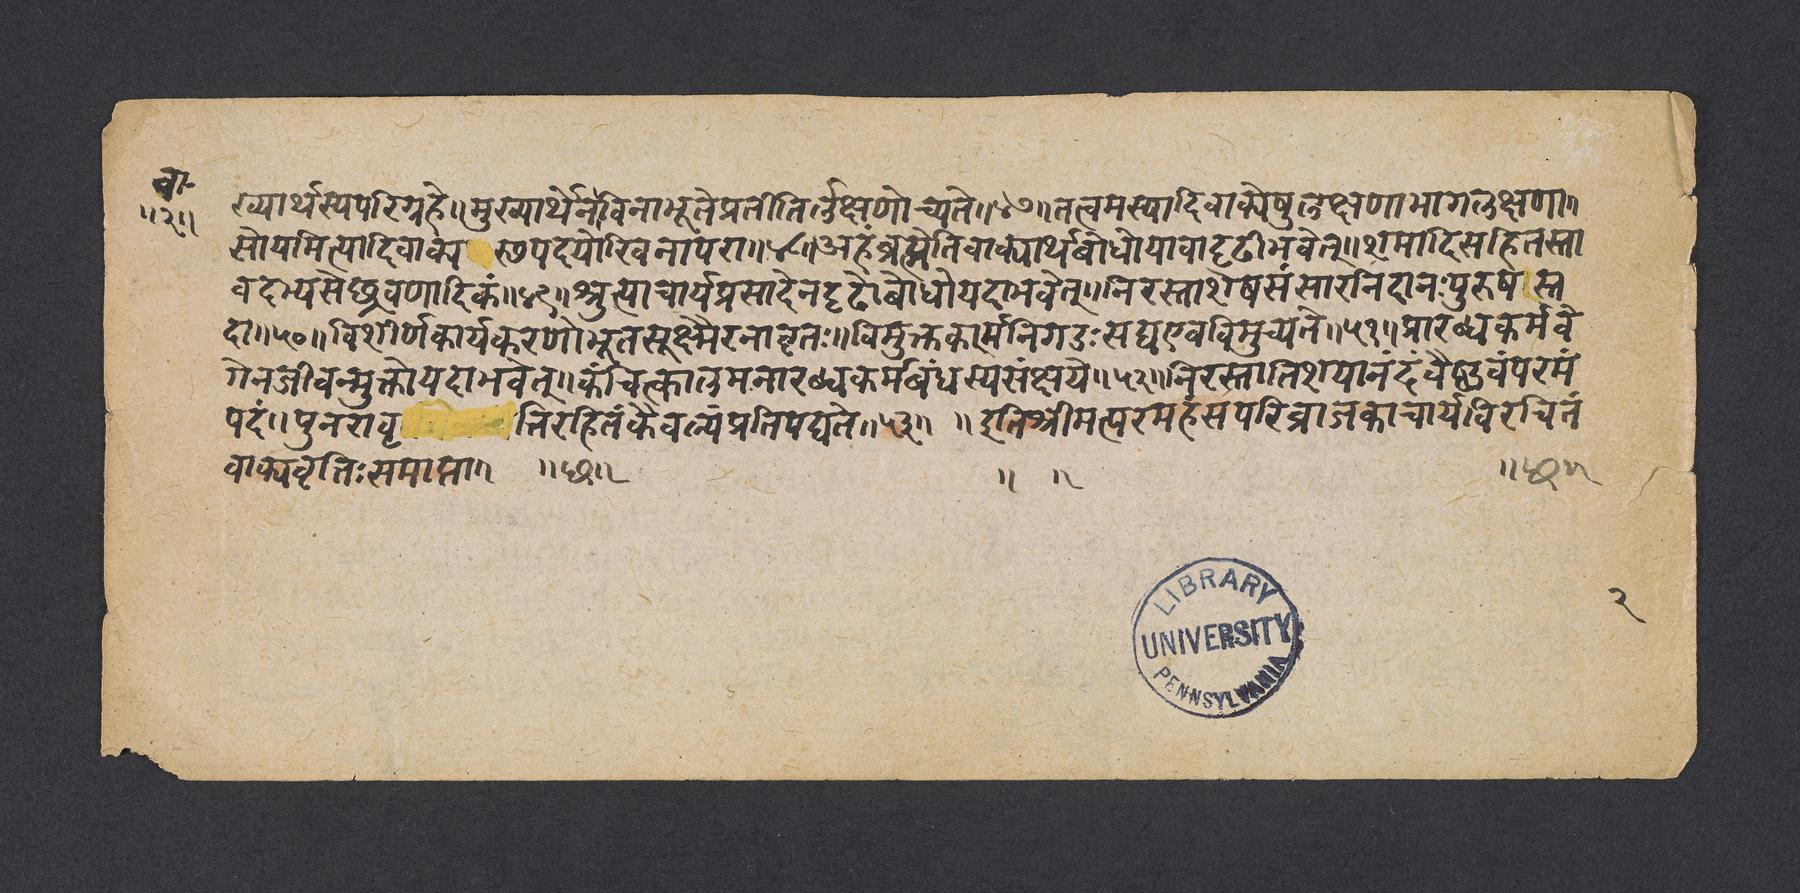 वा-
॥२॥
ख्यार्थस्यपरिग्रहे॥मुख्यार्थेनेविनाभूतेप्रतीतिर्लक्षणोच्यते॥४७॥तत्वमस्यादिवाक्येषुलक्षणाभागलक्षणा॥
सोयमित्यादिवाक्य स्थपदयोरिवनापरा॥४८॥अहंब्रह्मेतिवाक्यार्थबोधोयावादृढीभवेत्॥शमादिसहितस्ता
वदभ्यसेछ्रवणादिकं॥४९॥श्रुत्याचार्यप्रसादेनदृढोबोधोयदाभवेत्॥निरस्ताशेषसंसारनिदानःपुरुषस्त
दा॥५०॥विशीर्णकार्यकरणोभूतसूक्ष्मैरनावृतः॥विमुक्तकार्मनिगडःसद्यएवविमुच्यते॥५१॥प्रारब्धकर्मवे
गेनजीवन्मुक्तोयदाभवेत्॥कंचित्कालमनारब्धकर्मबंधस्यसंक्षये॥५२॥निरस्तातिशयानंदंवैष्णवंपरमं
पदं॥पुनरावृ त्तिरहितंकैवल्यंप्रतिपद्यते॥५३॥ ॥इतिश्रीमत्परमहंसपरिव्राजकाचार्यविरचितं
वाक्यवृत्तिःसमाप्ता॥ ॥छ॥ ॥ ॥ ॥छ॥
२
LIBRARY
UNIVERSITY
PENNSYLVANIA